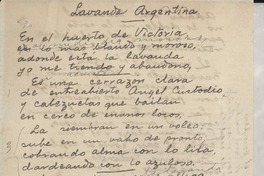 Lavanda Argentina
En el huerto de Victoria,
en lo mas blando y moroso,
adonde está la lavanda
yo me tiendo y abandono,
Es una cerrazón clara
de entreabierto Angel Custodio
y cabezuelas que bailan
en cerco de enanos locos.
La siembran en un voleo
sube en un vaho de pronto
cobrando alma con la lila
dardeando con lo azuloso.